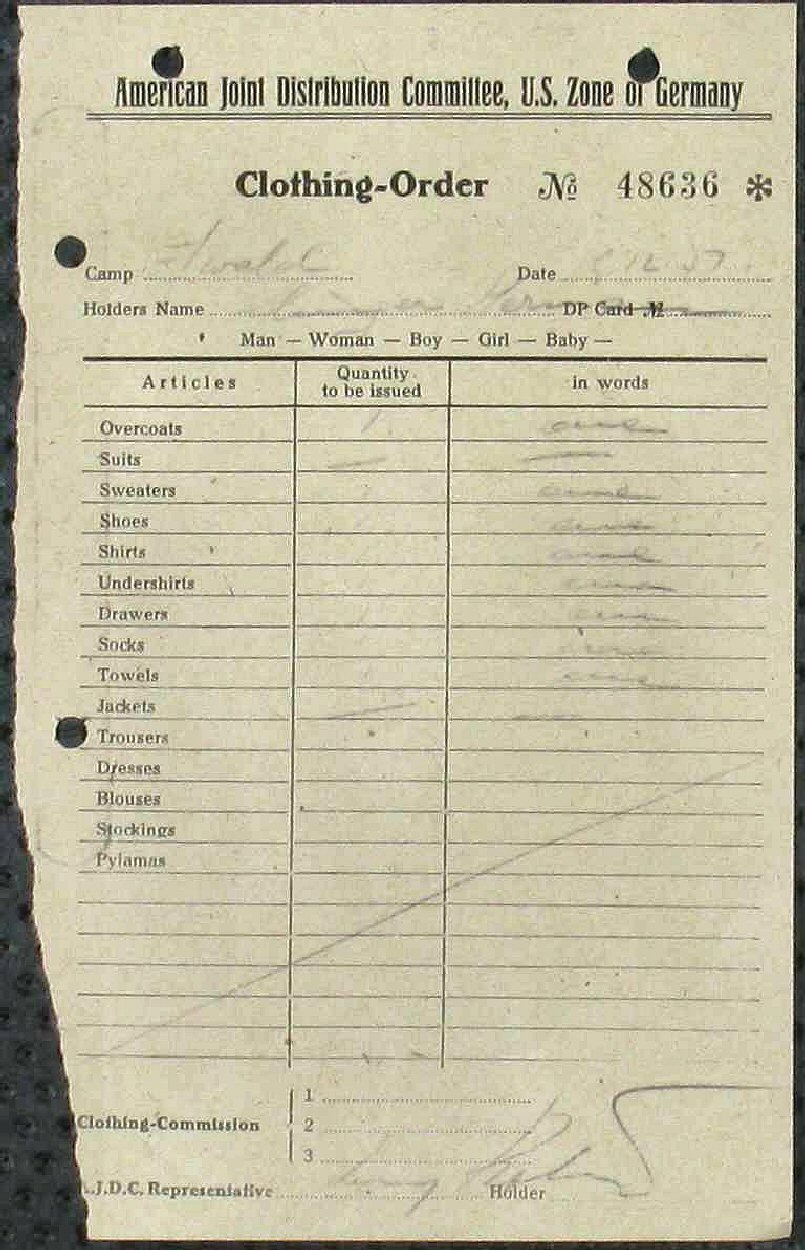 American Joint Distribution Committee, U.S. Zone of Germany
Clothing-Order № 48636 *
Camp Date
Holders Name DP Card №
Man — Woman — Boy — Girl — Baby —
Articles Quantity to be issued in words
Overcoats 1 one
Suits — —
Sweaters one
Shoes one
Shirts one
Undershirts one
Drawers 1 one
Socks one
Towels 1 one
Jackets — —
Trousers
Dresses
Blouses
Stockings
Pyjamas
1
Clothing-Commission 2
3
A.J.D.C. Representative Holder